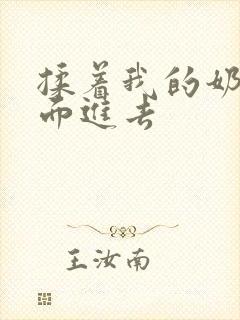 揉着我的奶
而进去
王汝南